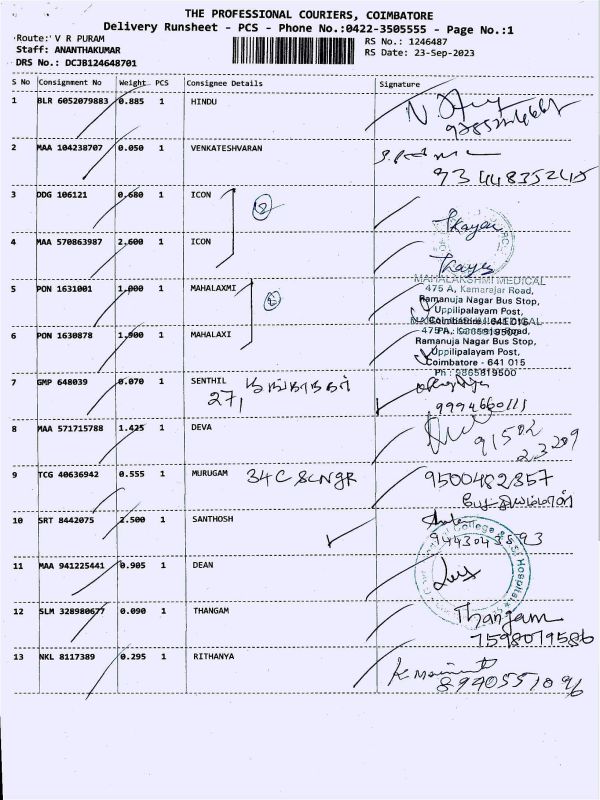 THE PROFESSIONAL COURIERS, COIMBATORE
Delivery Runsheet - PCS - Phone No.:0422-3505555 - Page No.:1
Route: V R PURAM
RS No.: 1246487
Staff: ANANTHAKUMAR
RS Date: 23-Sep-2023
DRS No.: DCJB124648701
S No Consignment No Weight PCS Consignee Details Signature
1 BLR 6052079883 0.885 1 HINDU
2 MAA 104238707 0.050 1 VENKATESHVARAN
9344835245
3 DDG 106121 0.680 1 ICON
4 MAA 570863987 2.600 1 ICON
MAHALAKSHMI MEDICAL
475 A, Kamarajar Road,
5 PON 1631001 1.000 1 MAHALAXMI
Ramanuja Nagar Bus Stop,
Uppilipalayam Post,
Coimbatore - 641 015
6 PON 1630878 1.900 1 MAHALAXI
Ramanuja Nagar Bus Stop,
Uppilipalayam Post,
Coimbatore - 641 015
Ph : 9865819500
7 GMP 648039 0.070 1 SENTHIL
271
9994660111
8 MAA 571715788 1.425 1 DEVA
9 TCG 40636942 0.555 1 MURUGAM 34C SCNGR 9500482857
10 SRT 8442075 2.500 1 SANTHOSH
9443043593
11 MAA 941225441 0.905 1 DEAN
12 SLM 328980677 0.090 1 THANGAM Thangam
7598079586
13 NKL 8117389 0.295 1 RITHANYA
8940551096